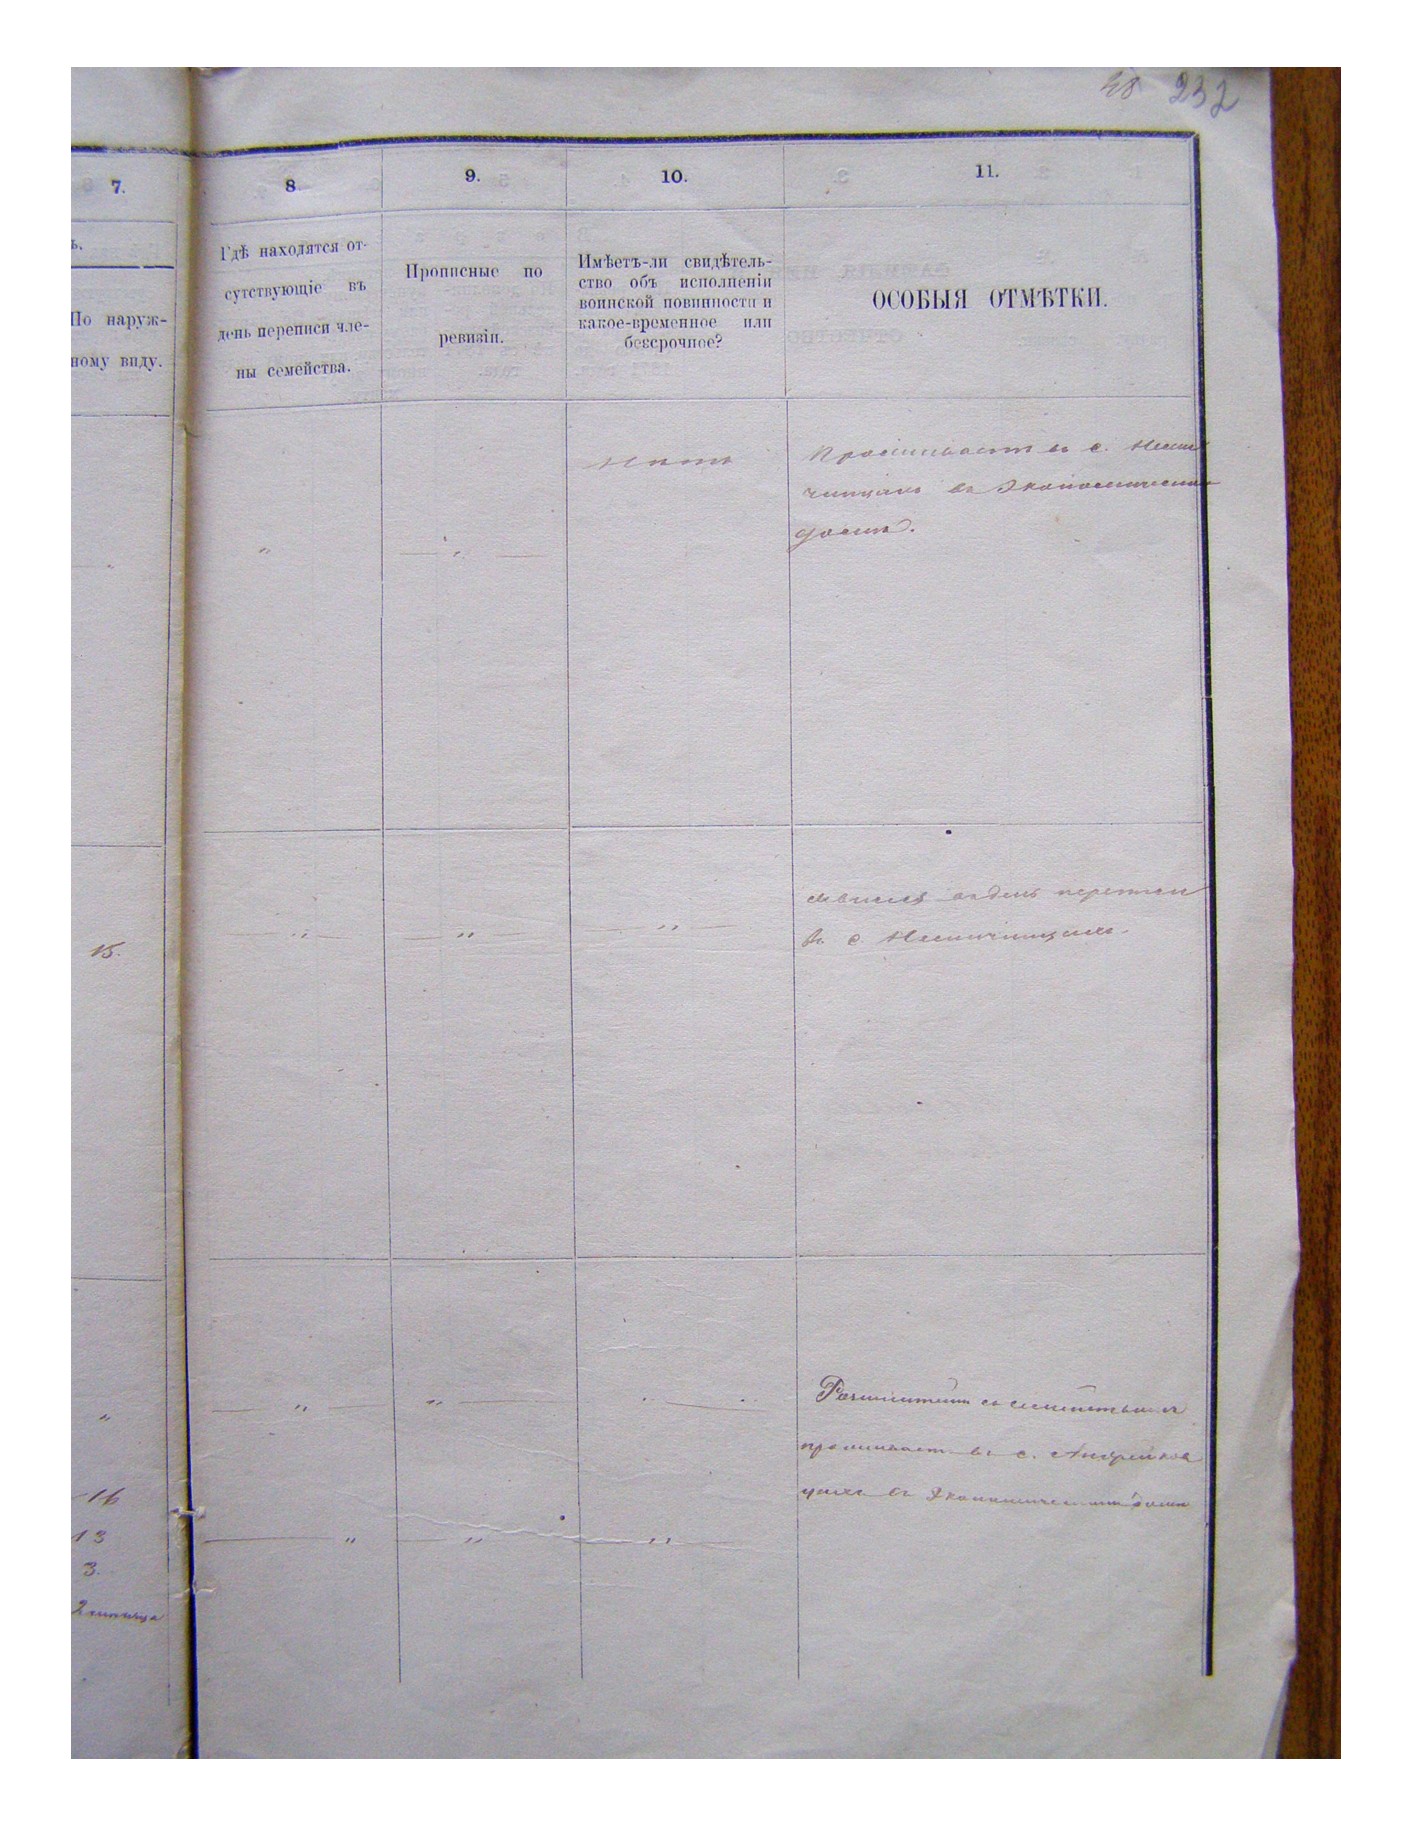 232
7.
8
9.
10.
11.
ъ.
По наруж-
ному виду.
Гдѣ находятся от-
сутствующіе въ
день переписи чле-
ны семейства.
Прописные по
ревизіи.
Имѣетъ-ли свидѣтель-
ство объ исполненіи
воинской повинности и
какое-временное или
безсрочное?
ОСОБЫЯ ОТМѢТКИ.
Нѣтъ
Проживаетъ въ с.
въ Экономическомъ
домѣ.
15.
въ с.
проживаетъ въ с. Андрейков
цахъ въ Экономическомъ домѣ
16
13
3.
2